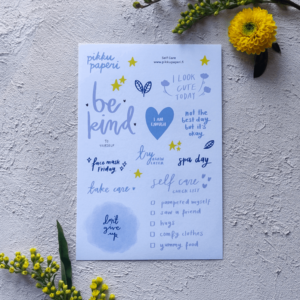 pikku
paperi
I LOOK
CUTE
TODAY
be
kind
TO
YOURSELF
I AM
ENOUGH
not the
best day,
but it's
okay.
face mask
friday
try
spa day
take care
self care
CHECK LIST
pampered myself
saw a friend
hugs
comfy clothes
yummy food
don't
give up